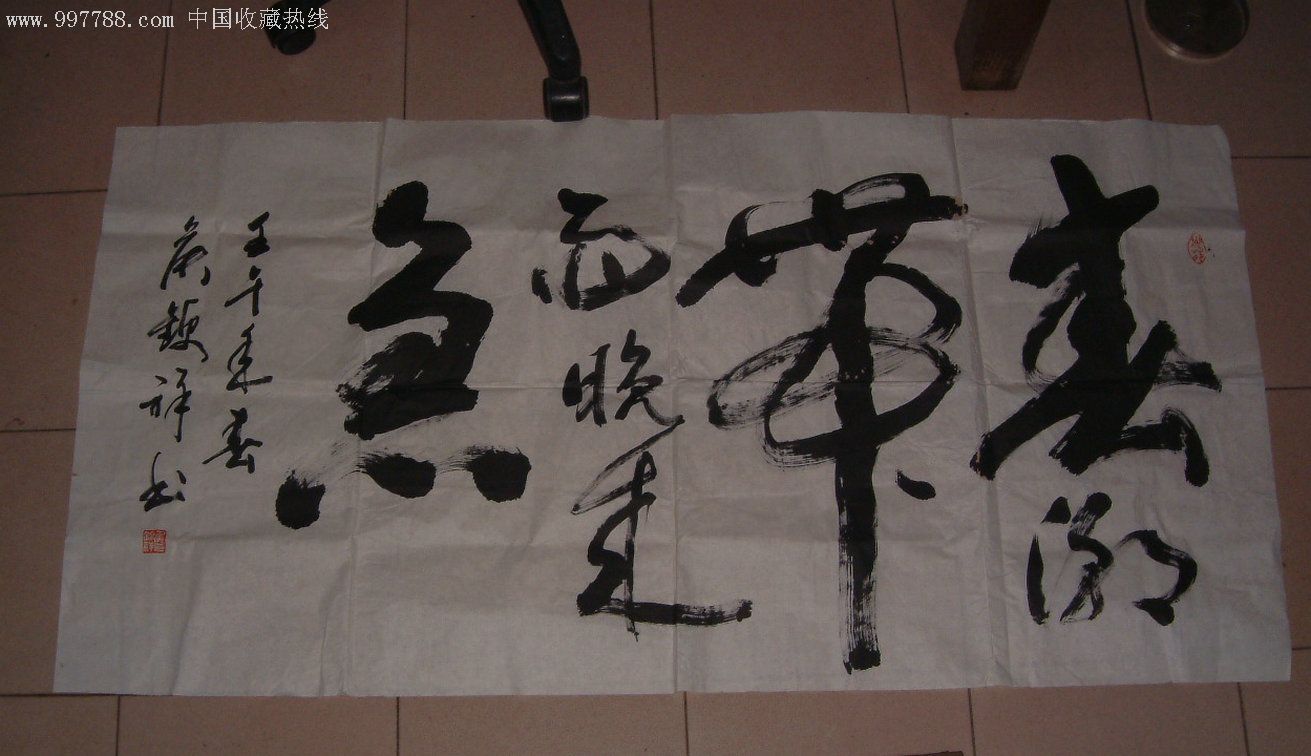 www.997788.com 中国收藏热线
春潮
帶
雨晚来
急
壬午年春
祥书